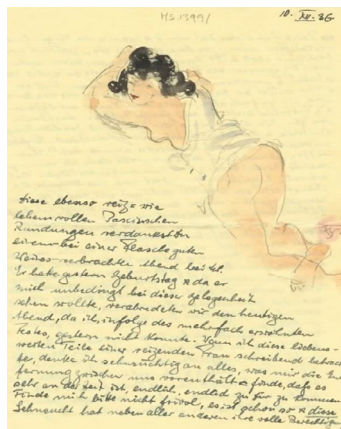 HS.1399/
10. XII. 36.
Diese ebenso reiz- wie
lebensvollen Pascinschen
Rundungen verdankst Du
einem bei einer Flasche guten
Weines verbrachten Abend bei
Er hatte gestern Geburtstag & da er
mich unbedingt bei dieser Gelegenheit
sehen wollte, verabredeten wir den heutigen
Abend, da ich infolge des mehrfach erwähnten
Festes, gestern nicht konnte. Wenn ich diese liebens-
werten Teile einer reizenden Frau schreibend betrach
te, denke ich sehnsüchtig an alles, was mir die Ent
fernung zwischen uns vorenthält & finde, daß es
sehr an der Zeit ist, endlich, endlich zu Dir zu kommen
Finde mich bitte nicht frivol, es ist schon so & diese
Sehnsucht hat neben aller anderen ihre volle Berechtigung